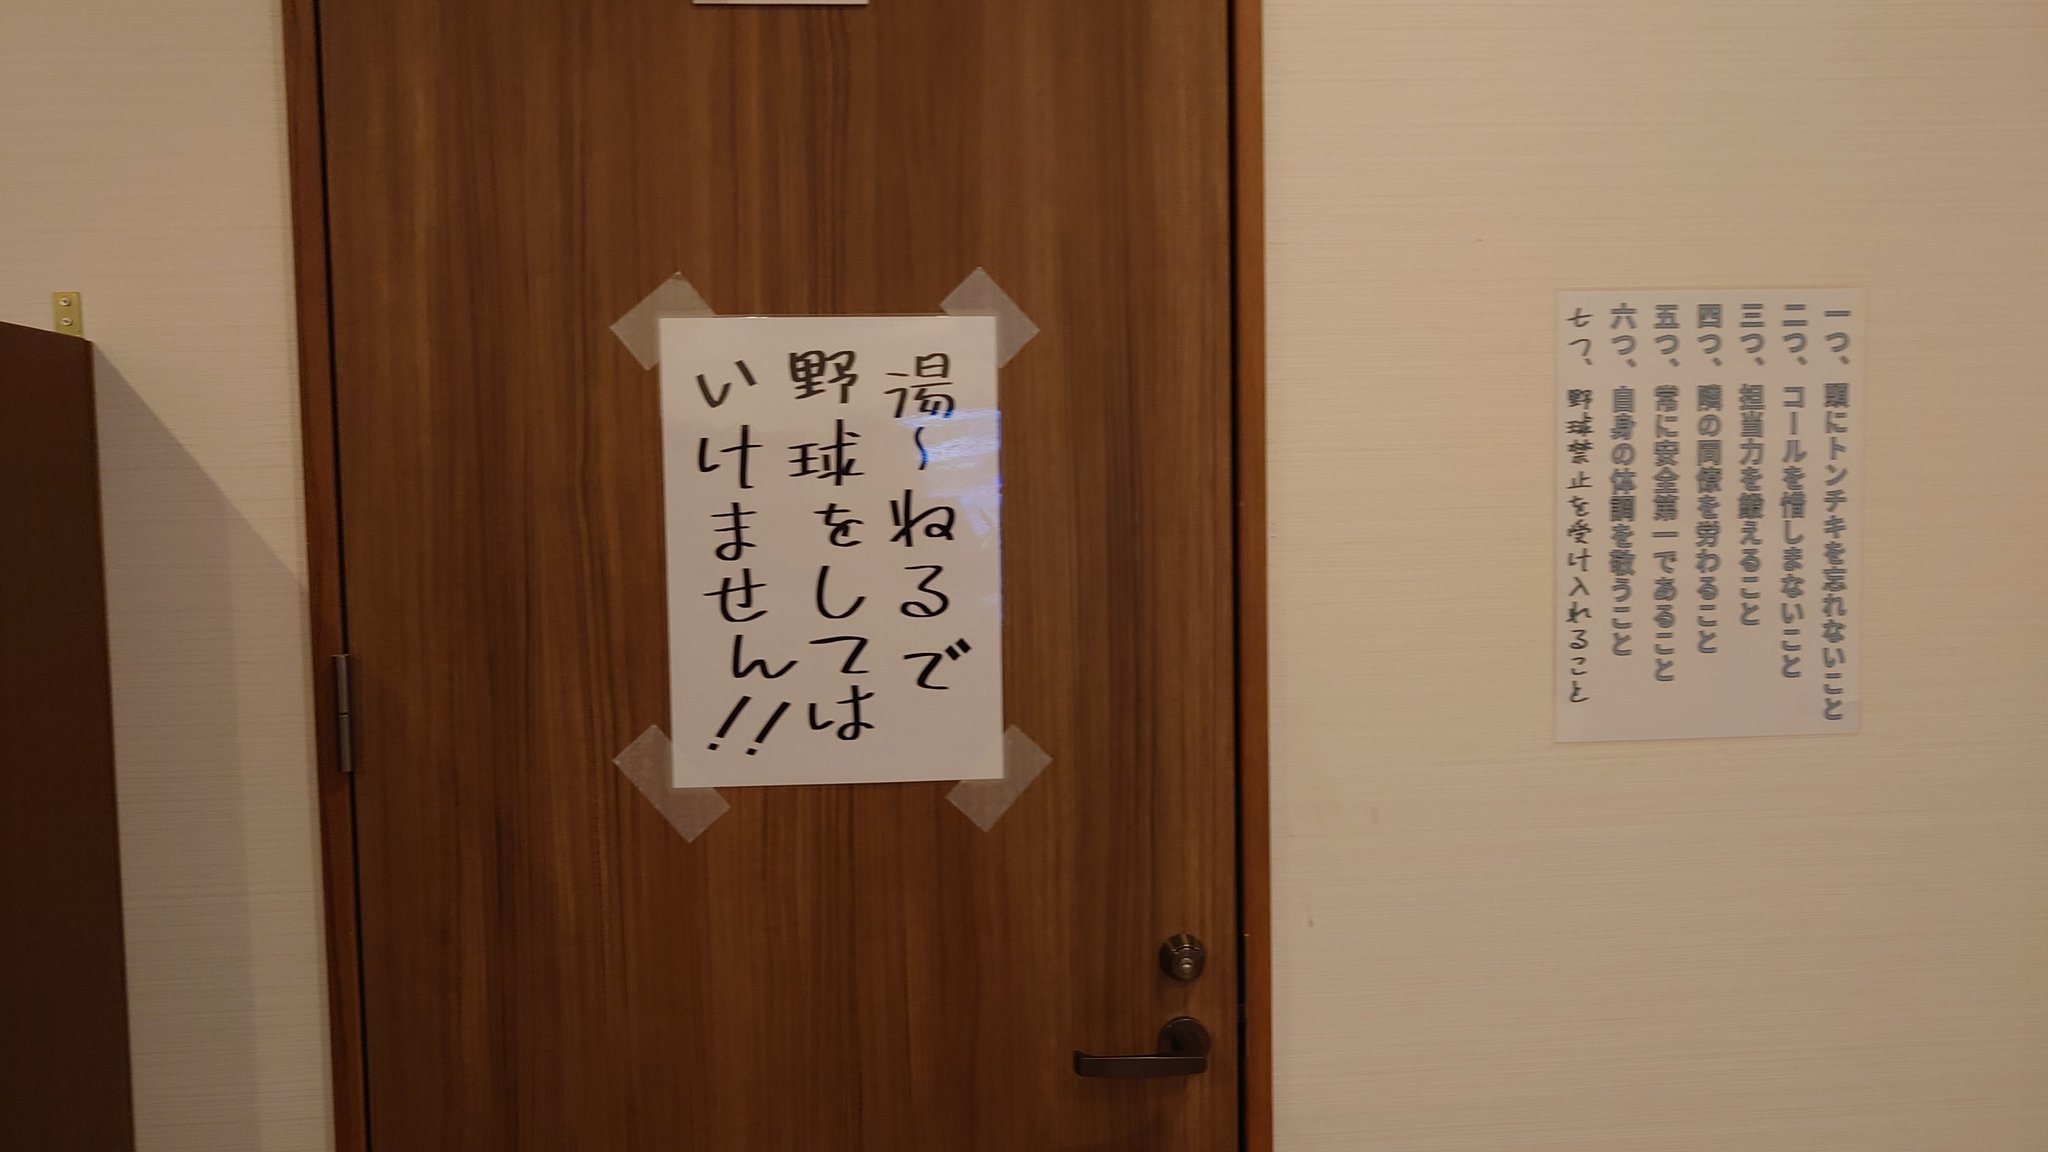 湯〜ねるで
野球をしては
いけません!!
一つ、頭にトンチキを忘れないこと
二つ、コールを惜しまないこと
三つ、担当力を鍛えること
四つ、隣の同僚を労わること
五つ、常に安全第一であること
六つ、自身の体調を敬うこと
七つ、野球禁止を受け入れること